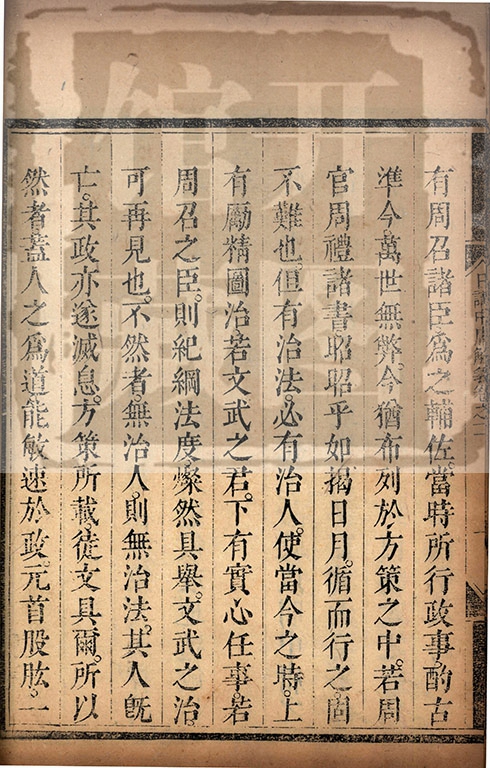 有周召諸臣爲之輔佐。當時所行政事。酌古
準今。萬世無弊。今猶布列於方策之中。若周
官周禮諸書。昭昭乎如揭日月。循而行之。固
不難也。但有治法。必有治人。使當今之時。上
有勵精圖治。若文武之君。下有實心任事。若
周召之臣。則紀綱法度。燦然具舉。文武之治
可再見也。不然者。無治人。則無治法。其人旣
亡。其政亦遂滅息。方策所載。徒文具爾。所以
然者。蓋人之爲道。能敏速於政。元首股肱。一